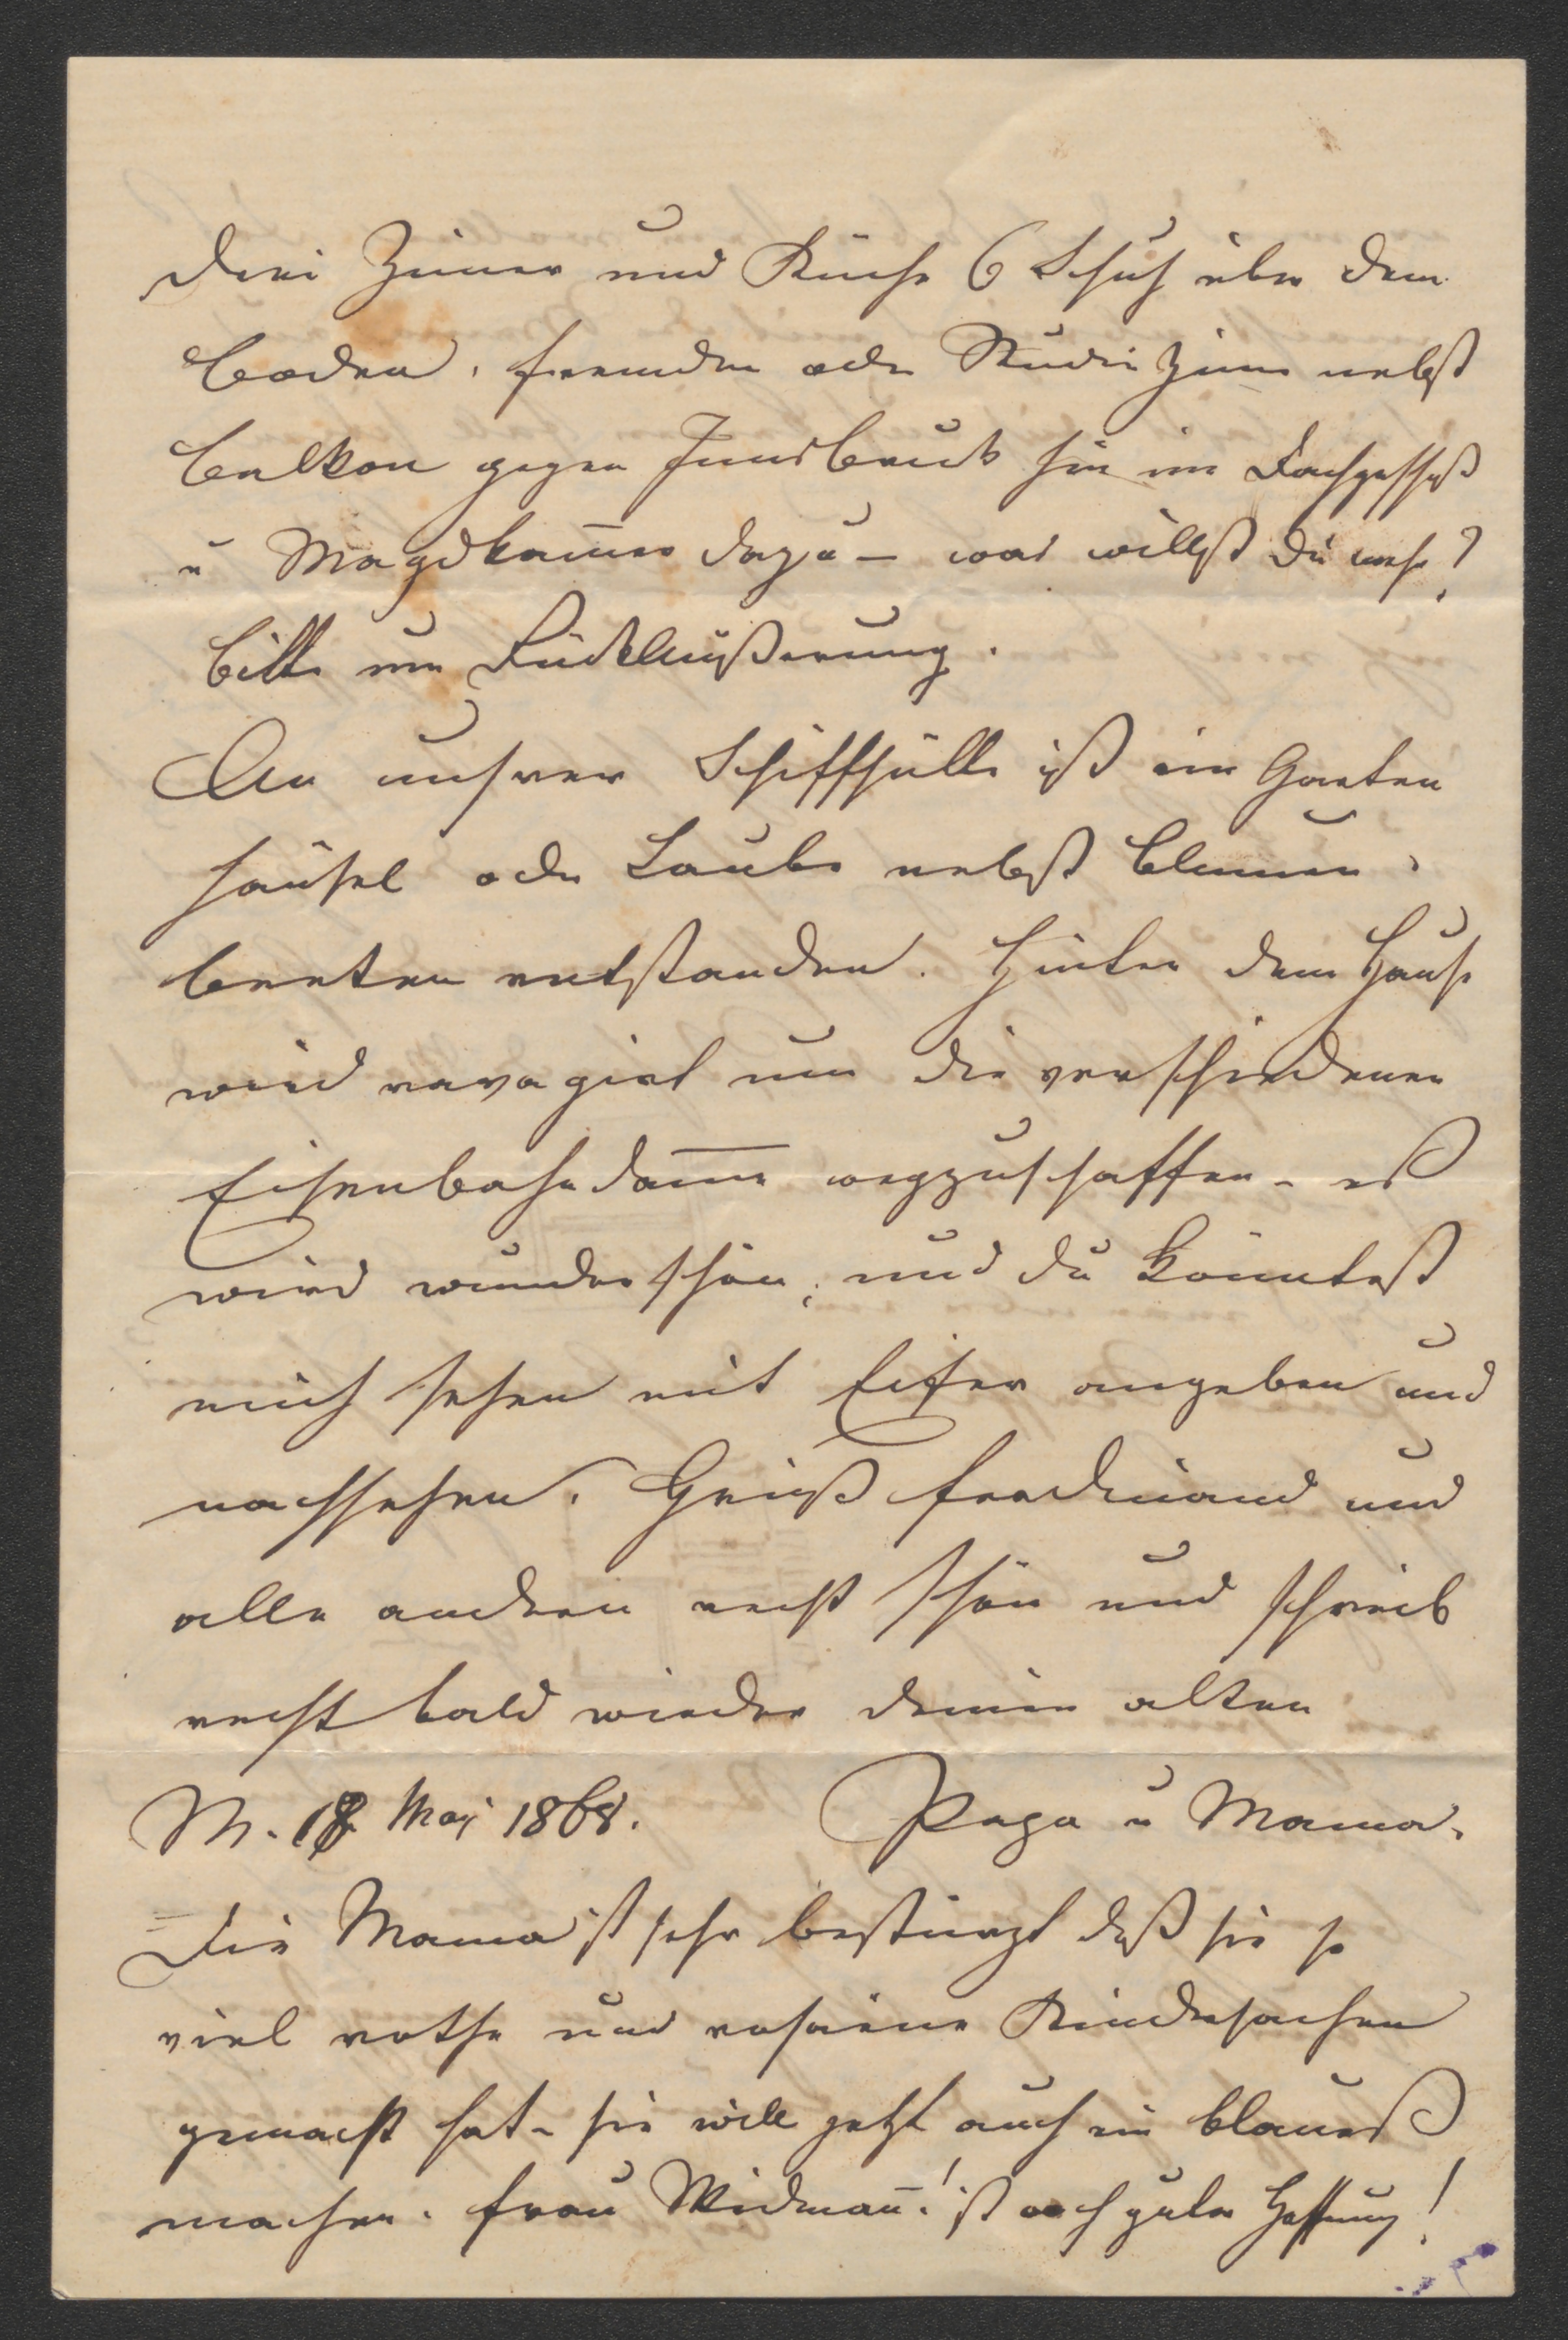 drei Zimer und Küche 6 Schuh über dem
boden, fremden oder Studir Zimer nebst
balkon gegen Innsbruck hin im Dachgeschoß
u Magdkam̅er dazu – was willst Du mehr?
bitte um Rückäußerung.
An unsrer Schiffhütte ist ein Garten
häusel oder Laube nebst blumen,
beeten entstanden. Hinter dem Hause
wird ravagirt um die verschiedenen
Eisenbahndäm̅e wegzuschaffen – es
wird wunderschön; und du könntest
mich sehen mit Eifer angeben und
nachsehen. Grüß Ferdinand und
alle andern recht schön und schreib
recht bald wieder deinen alten
M. 18 Mai 1868. Papa u Mama.
Die Mama ist sehr bestürzt daß sie so
viel rothe und rosaene Kindersachen
gemacht hat – sie will jetzt auch ein blaues
machen. Frau Widman̅! ist auch guter Hoffnung!